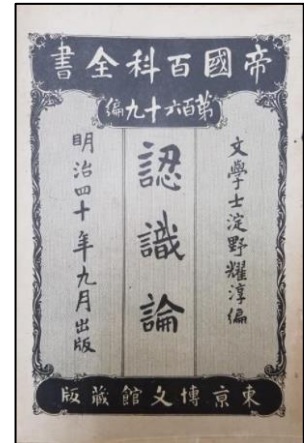 帝國百科全書
(第百六十九編)
文學士淀野耀淳編
認識論
明治四十年九月出版
東京博文館藏版